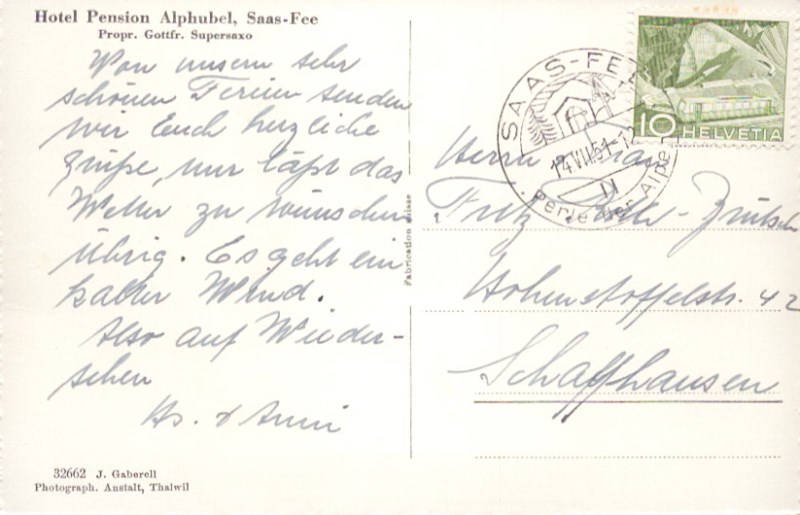 Hotel Pension Alphubel, Saas-Fee
Propr. Gottfr. Supersaxo
Von unsern sehr
schönen Ferien senden
wir Euch herzliche
Grüße, nur läßt das
Wetter zu wünschen
übrig. Es geht ein
kalter Wind.
Also auf Wieder-
sehen
Hs. & Anni
32662 J. Gaberell
Photograph. Anstalt, Thalwil
Fabrication suisse
SAAS-FEE
14.VII.51-12
Perle der Alpen
10 HELVETIA
Herrn & Frau
Fritz
Hohenstoffelstr. 42
Schaffhausen